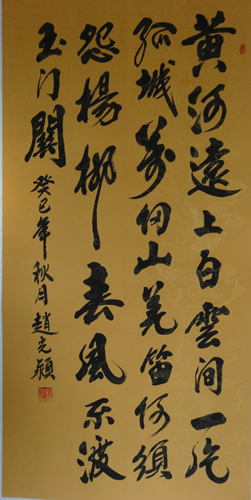 黄河遠上白雲间一片
孤城萬仞山羌笛何須
怨楊柳春風不渡
玉门關
癸巳年秋月趙光穎